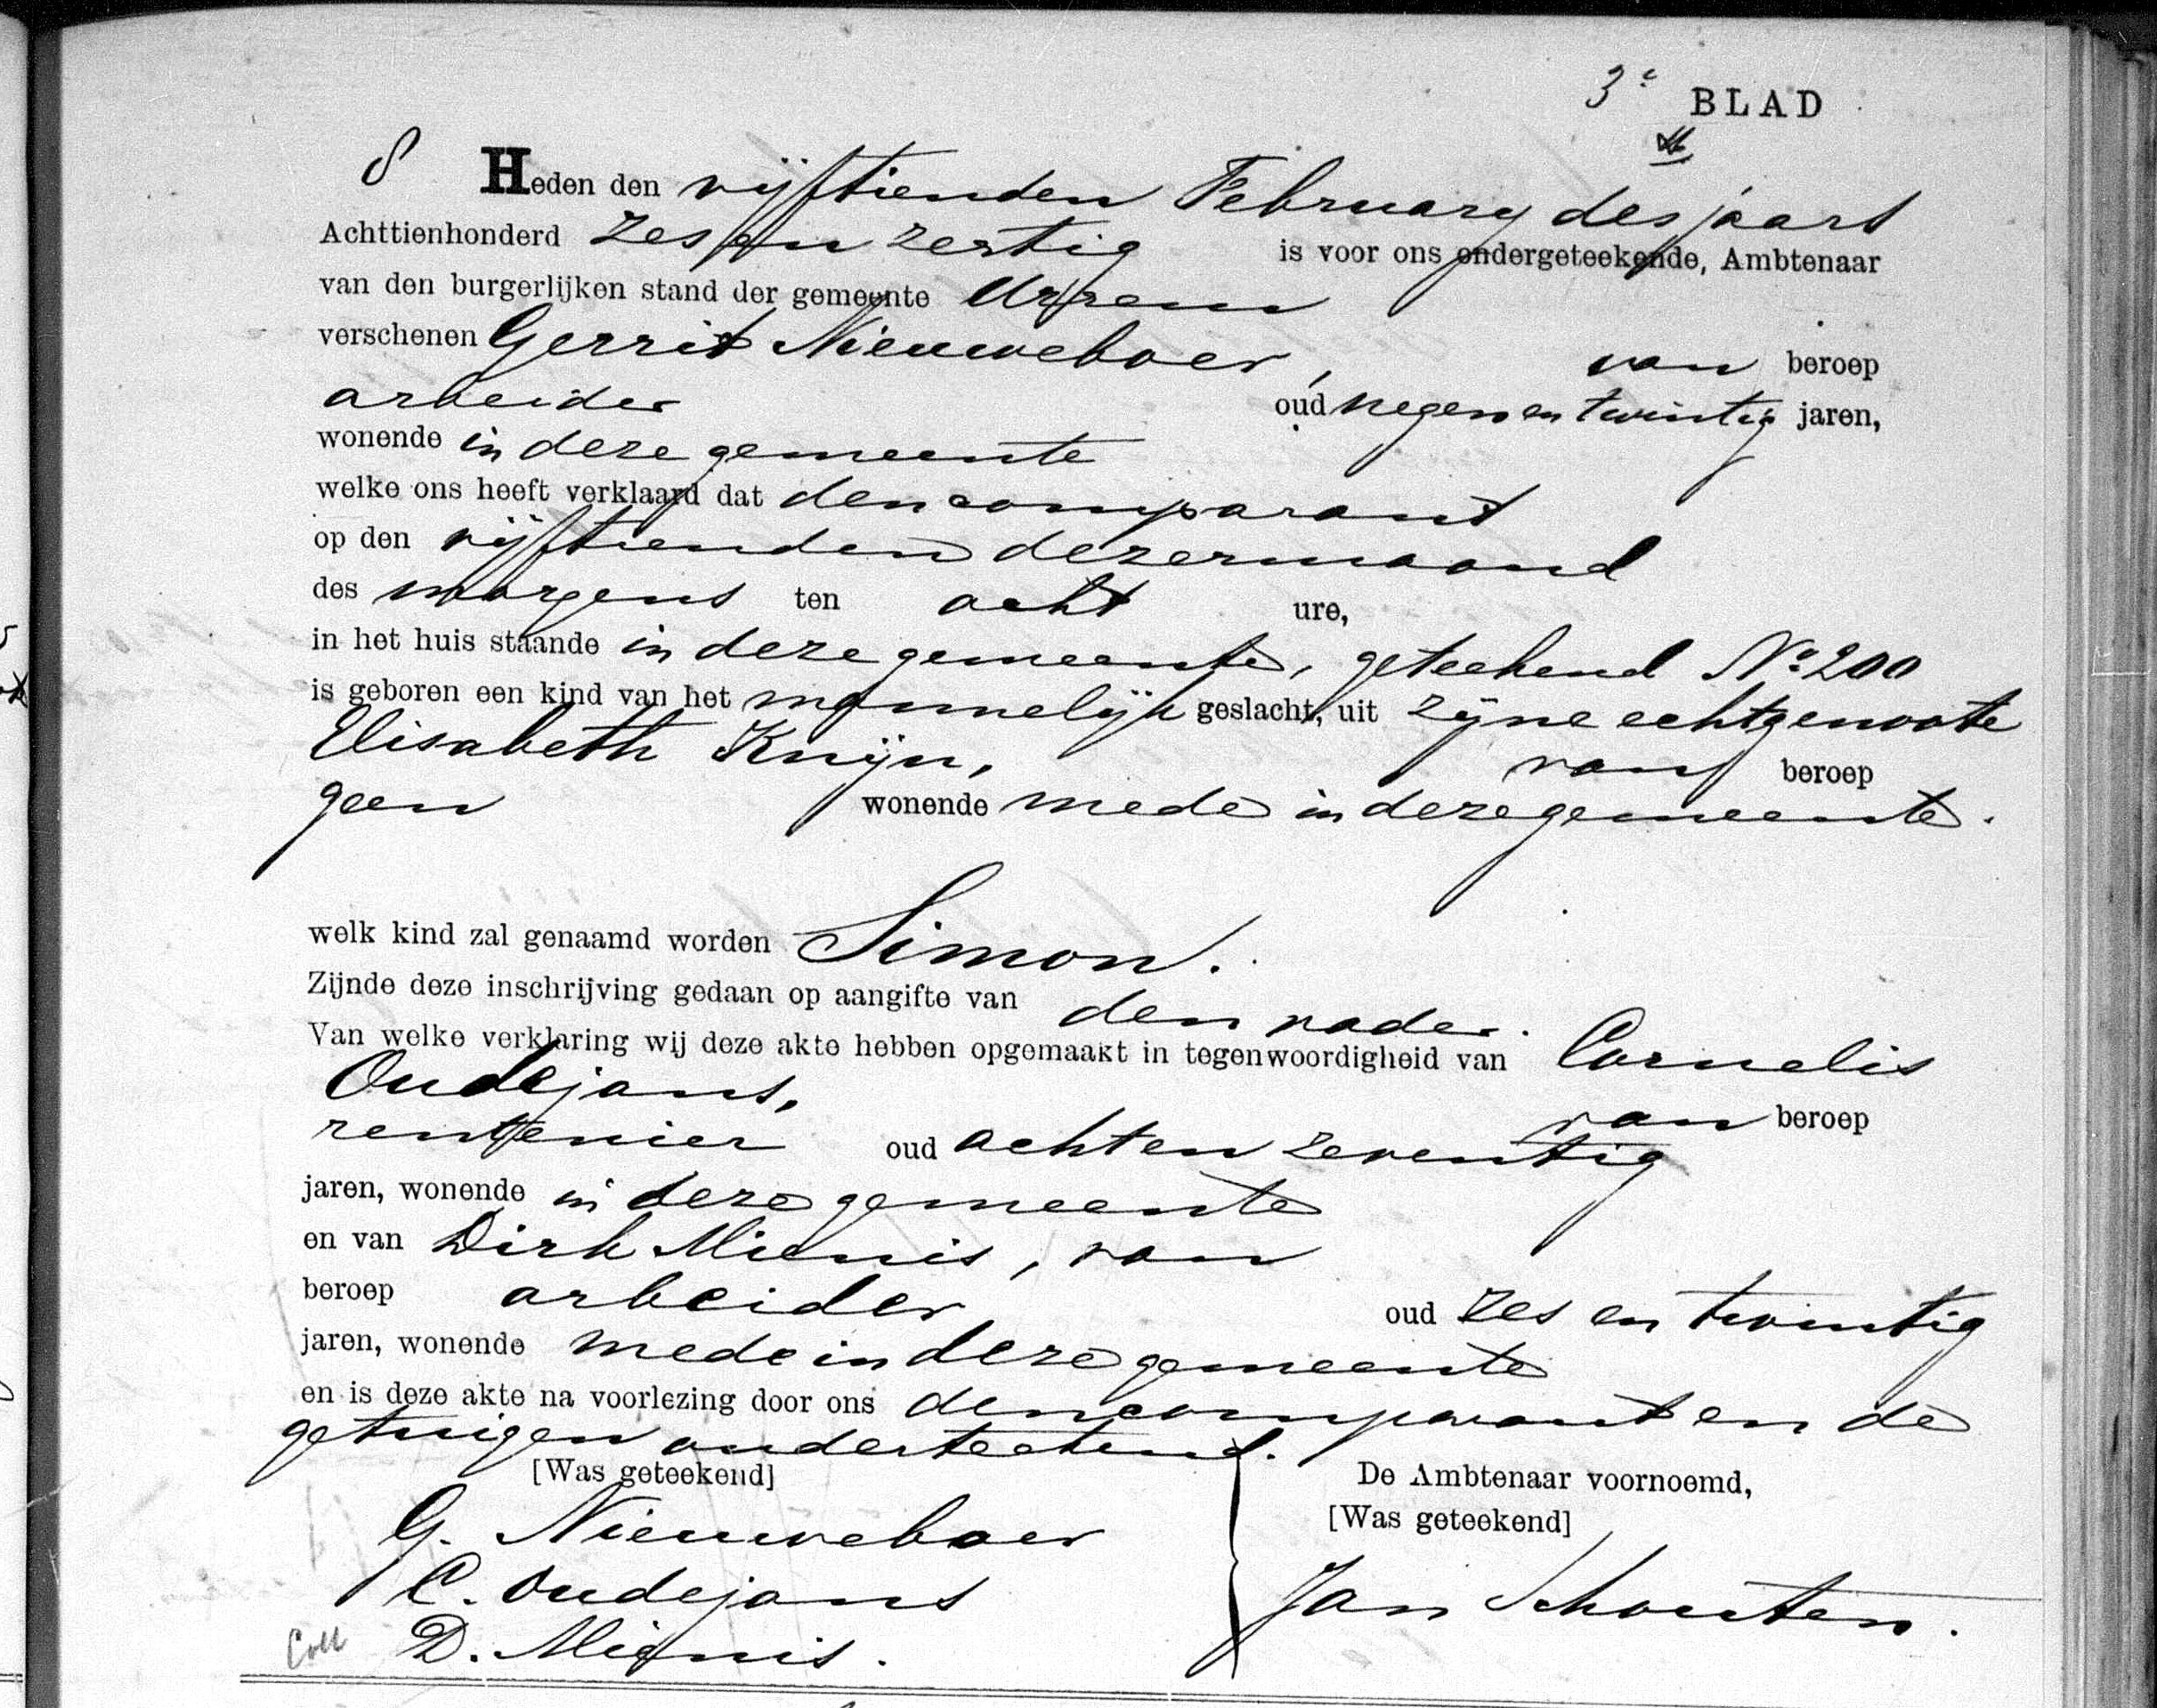 3e BLAD
8 Heden den vijftienden February des jaars
Achttienhonderd zes en zestig is voor ons ondergeteekende, Ambtenaar
van den burgerlijken stand der gemeente Ursem
verschenen Gerrit Nieuweboer, van beroep
arbeider oud negen en twintig jaren,
wonende in deze gemeente
welke ons heeft verklaard dat den comparant
op den vijftienden dezer maand
des morgens ten acht ure,
in het huis staande in deze gemeente, geteekend No 200
is geboren een kind van het mannelijk geslacht, uit zijne echtgenoote
Elisabeth Knijn, van beroep
geen wonende mede in deze gemeente.
welk kind zal genaamd worden Simon.
Zijnde deze inschrijving gedaan op aangifte van den vader.
Van welke verklaring wij deze akte hebben opgemaakt in tegenwoordigheid van Cornelis
Oudejans, van beroep
rentenier oud acht en zeventig
jaren, wonende in deze gemeente
en van Dirk Mienis, van
beroep arbeider oud zes en twintig
jaren, wonende mede in deze gemeente
en is deze akte na voorlezing door ons den comparant en de
getuigen onderteekend.
[Was geteekend] De Ambtenaar voornoemd,
G. Nieuweboer [Was geteekend]
C. Oudejans Jan Schouten.
Coll D. Mienis.